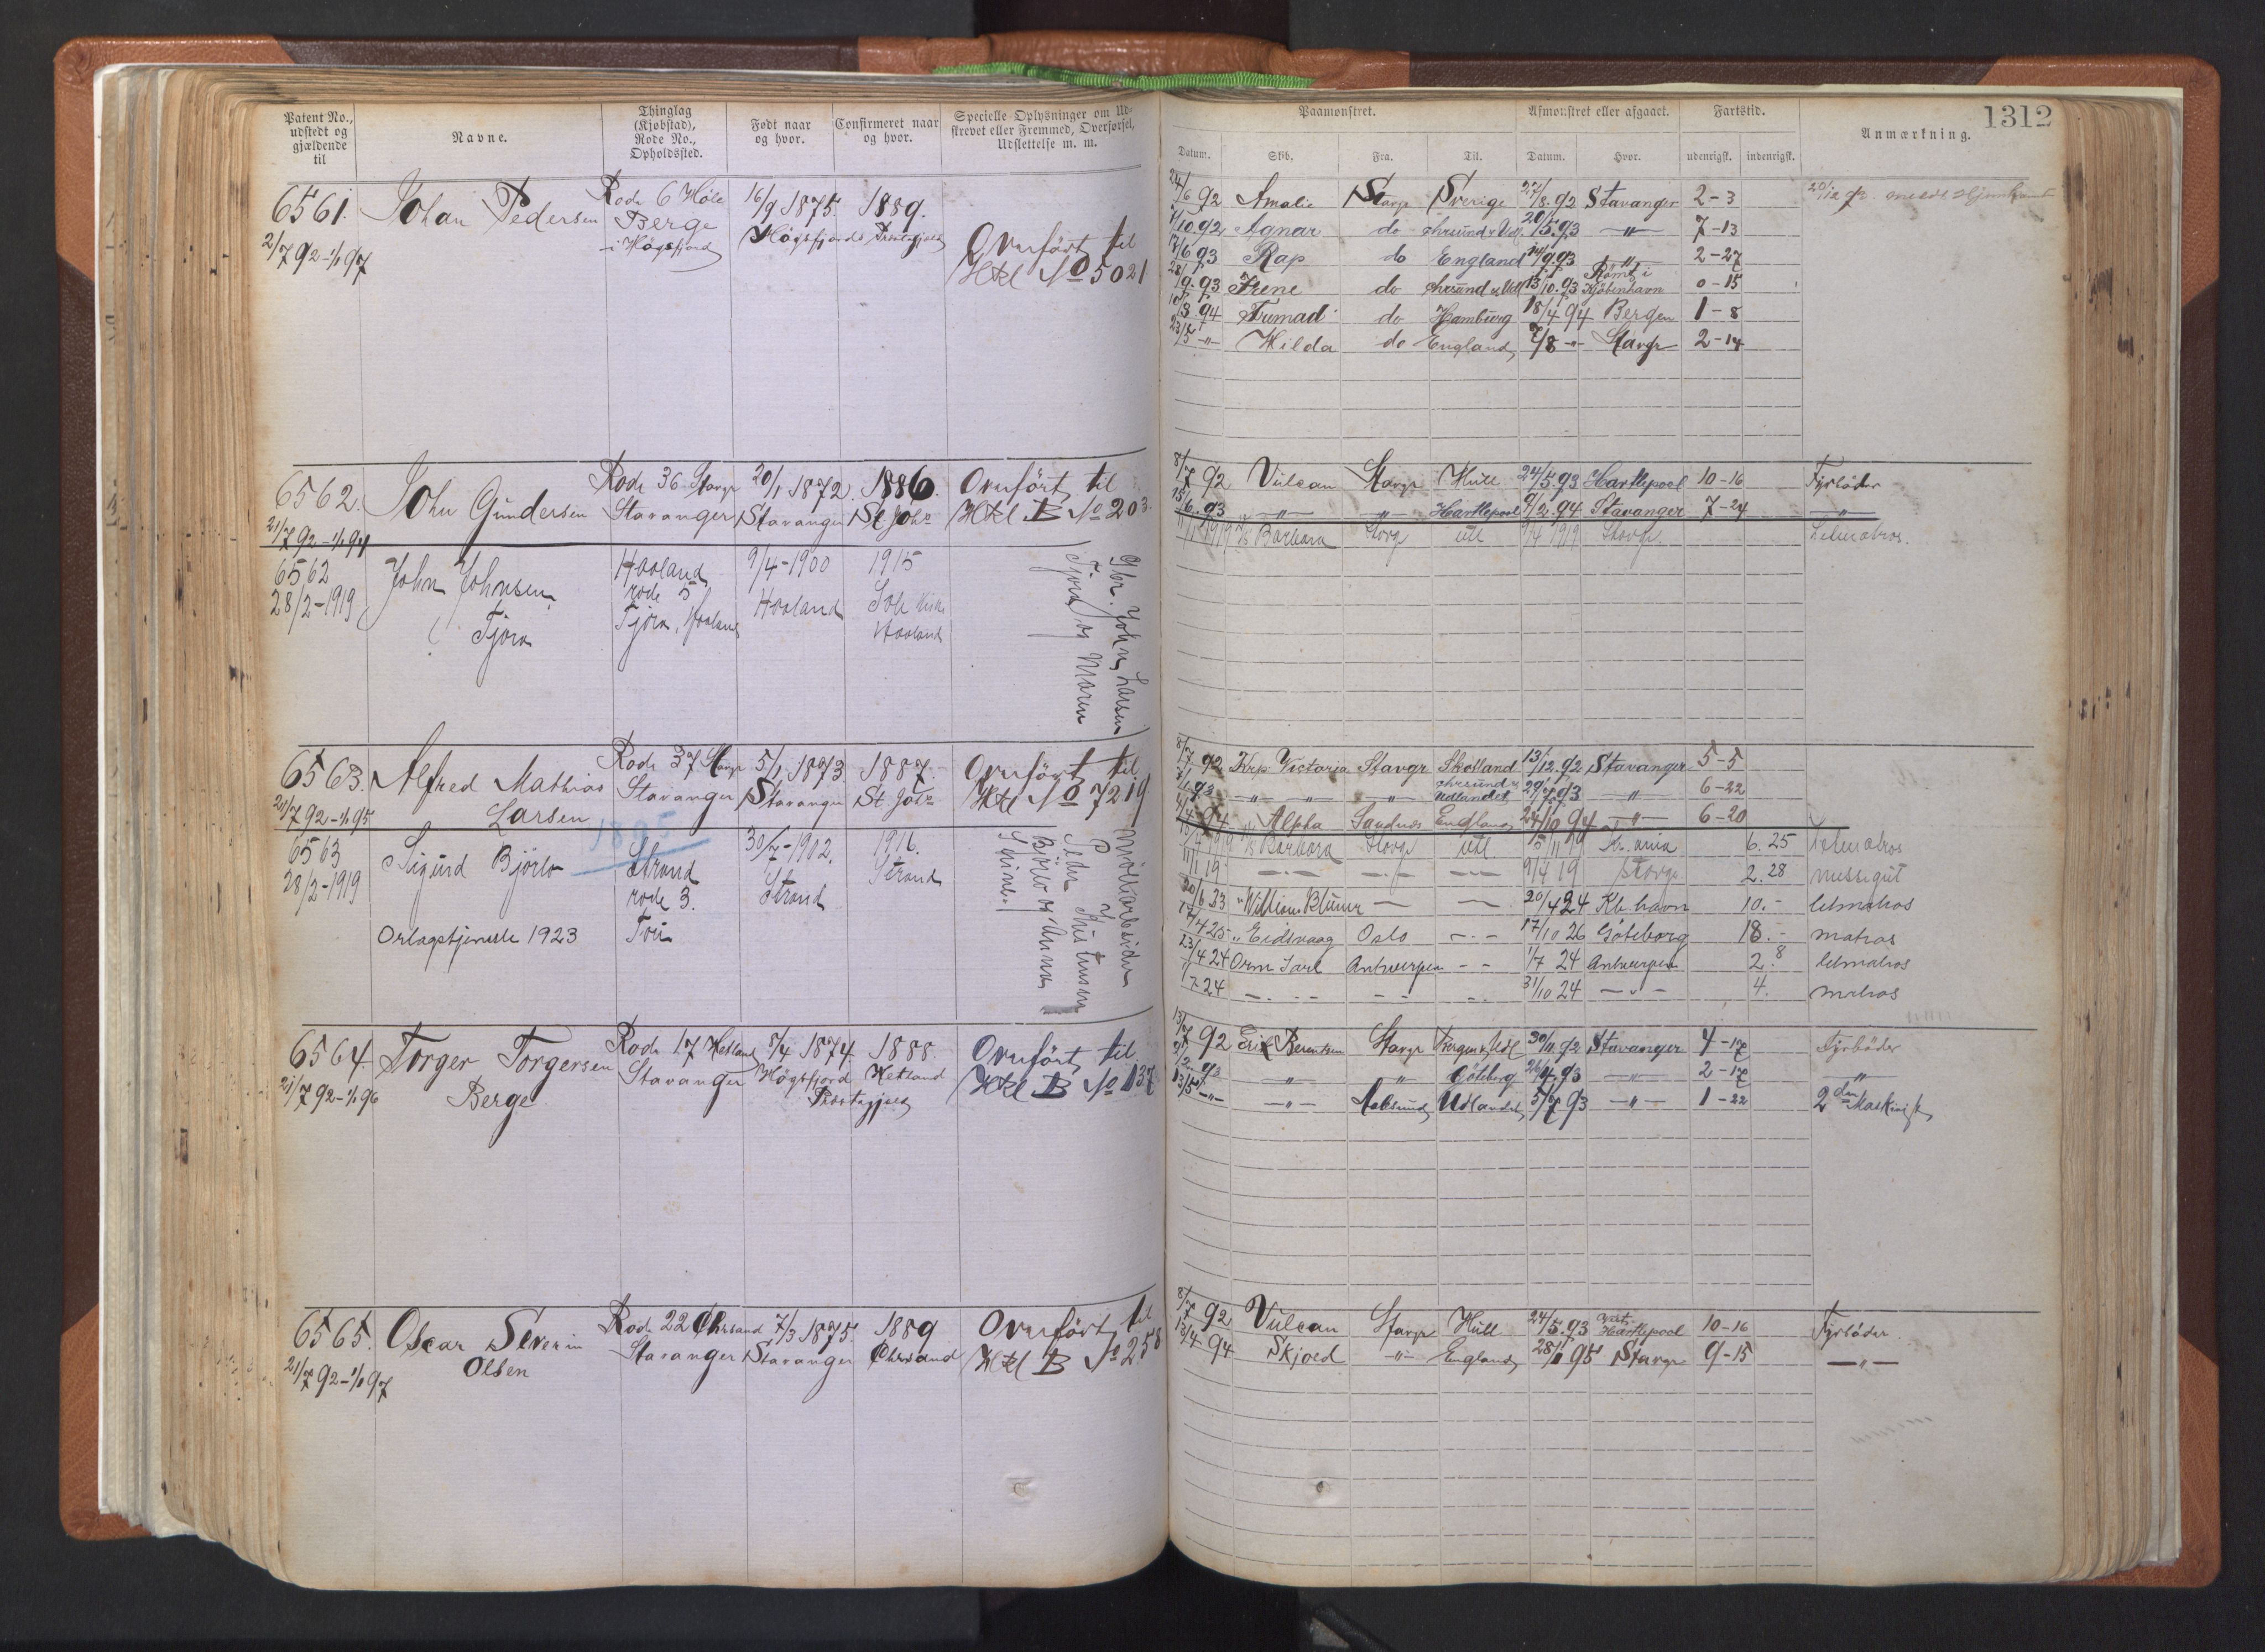 Patent No., udstedt og gjældende til
Navne.
Thinglag (Kjøbstad), Rode No., Opholdssted.
Født naar og hvor.
Confirmeret naar og hvor.
Specielle Oplysninger om Udskrevet eller Fremmed, Overførsel, Udslettelse m. m.
6561. Johan Pedersen Rode 6 Höle 16/9 1875. 1889.
2/7 92 - 1/1 97 Berge i Högsfjord Högsfjords Præstegjeld
Overført til
Htl No 5021
6562. John Gundersen Rode 36 Stavgr 20/1 1872. 1886. Overført til
21/7 92 - 1/1 94 Stavanger Stavanger St. Johs Htl B No 203
6562 John Johnsen Haaland 9/4 - 1900 1915
28/2 - 1919 Tjora rode 5 Haaland Sole Kirke
Tjora, Haaland Haaland
Gbr. John Larsen
Tjora og Maren
6563. Alfred Mathias Rode 37 Stavgr 5/1 1873 1887. Overført til
21/7 92 - 1/1 95 Larsen Stavanger Stavanger St. Johs Htl No 7219
1895
6563 Sigurd Björlo Strand 30/7 - 1902. 1916.
28/2 - 1919 rode 3. Strand Strand
Orlogstjeneste 1923 Tou
Möllearbeider
Peder Kristensen
Björlo og Anna
6564. Torger Torgersen Rode 17 Hetland 8/4 1874. 1888. Overført til
21/7 92 - 1/1 96 Berge Stavanger Högsfjord Hetland Htl B No 137
Præstegjeld
6565. Oscar Severin Rode 22 Chrsand 7/3 1875. 1889 Overført til
21/7 92 - 1/1 97 Olsen Stavanger Stavanger Chrsand Htl B No 258
1312
Paamønstret.
Afmønstret eller afgaaet.
Fartstid.
Anmærkning.
Datum. Skib. Fra. Til. Datum. Hvor. udenrigsk. indenrigsk.
24/6 92 Amalie Stavgr Sverige 27/8. 92 Stavanger 2 - 3
11/10. 92 Agnar do Chrsund & Udl. 20/5. 93 -"- 7 - 13
17/6 93 Rap do England 14/9. 93 " 2 - 27
28/9. 93 Irene do Chrsund & Udl 13/10. 93 Römt i Kjöbenhavn 0 - 15
10/3. 94 Fremad do Hamburg 18/4 94 Bergen 1 - 8
23/5 -"- Hilda do England 7/8 -"- Stavgr 2 - 14
8/7 92 Vulcan Stavgr Hull 24/5. 93 Hartlepool 10 - 16 Fyrböder
15/6. 93 -"- -"- Hartlepool 9/2. 94 Stavanger 7 - 24 -"-
11/1 1919 Barbara Stavgr utl 9/4 1919 Stavgr. Letmatros.
8/7 92 Krp Victoria Stavgr Skotland 13/12. 92 Stavanger 5 - 5
7/1 93 -"- -"- -"- Chrsund & Udlandet 29/7. 93 -"- 6 - 22
4/4 94 Alpha Sandnes England 24/10 94 -"- 6 - 20
Barbara Stavgr utl Kr.ania 6. 25 Letmatros
11/1 19 -"- -"- -"- 9/4 19 Stavgr 2. 28 messegut
20/6 23 " William Blumer - - 20/4 24 Kb.havn 10. - letmatros
17/4 25 " Eidsvaag Oslo -"- 17/10 26 Göteborg 18. - matros
23/4 24 Orm Jarl Antwerpen - - 1/7 24 Antwerpen 2. 8 letmatros
1/7 24 -"- - - -"- 31/10 24 -"- 4. matros
13/7 92 Erik Berentsen Stavgr Bergen & Udl 30/11. 92 Stavanger 4 - 17 Fyrböder
9/2. 93 -"- " Göteborg 26/4. 93 -"- 2 - 17 -"-
13/5 -"- -"- Aalesund Udlandet 5/7 93 -"- 1 - 22 2den Maskinist
8/7 92 Vulcan Stavgr Hull 24/5. 93 Vest-Hartlepool 10 - 16 Fyrböder
13/4 94 Skjold -"- England 28/1 95 Stavgr 9 - 15 -"-